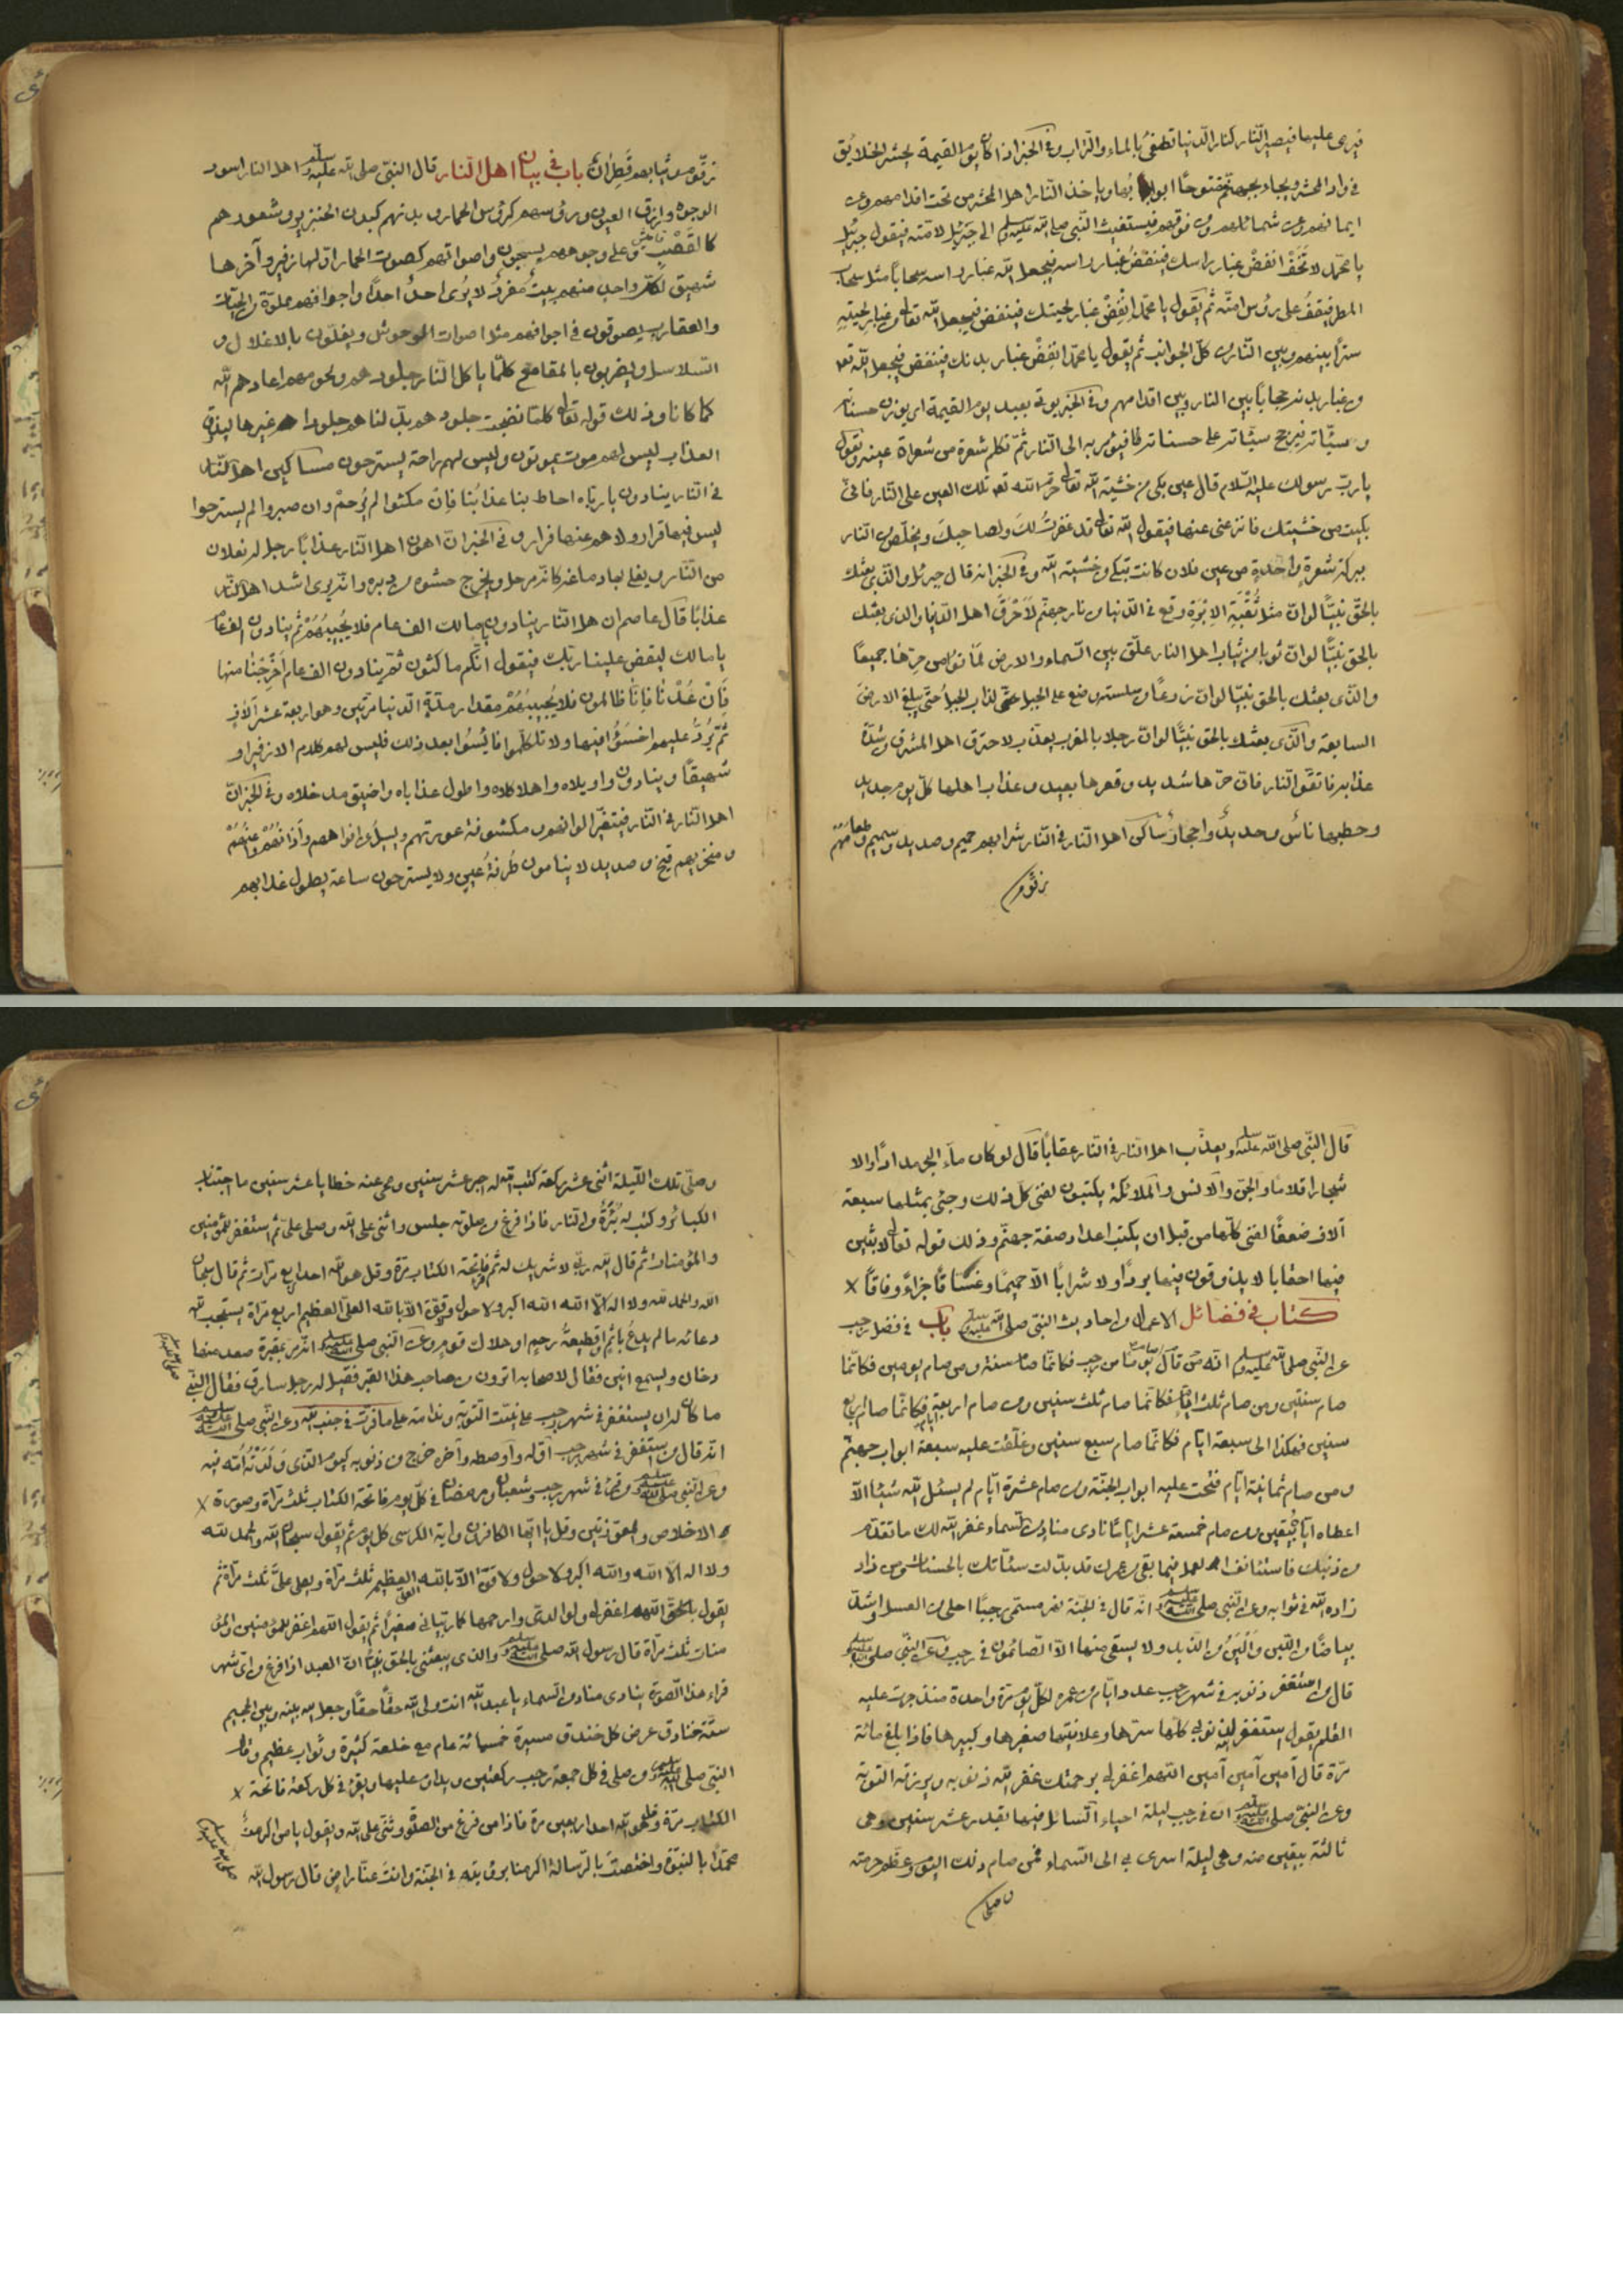 فيرمى عليها فيصير النار كنار الدنيا تطفئ بالماء والتراب وفى الخبر اذا كان يوم القيمة يحشر الخلايق
فى واد المحشر ويجاء بجهنم مفتوحًا ابوابها وياخذ النار اهل المحشر من تحت اقدامهم وعن
ايمانهم وعن شمائلهم ومن فوقهم فيستغيث النبى صلى الله عليه وسلم الى جبرئيل لامته فيقول جبرئيل
يا محمد لا تخف انفض غبار راسك فينفض غبار راسه فيجعل الله غبار راسه سحابًا مثل سحاب
المطر فيقف على رؤس امته ثم يقول يا محمد انفض غبار لحيتك فينفض فيجعل الله تعالى من غبار لحيته
سترًا بينهم وبين النار من كل الجوانب ثم يقول يا محمد انفض غبار بدنك فينفض فيجعل الله تعا
من غبار بدنه حجابًا بين النار وبين اقدامهم وفى الخبر يؤتى بعبد يوم القيمة اى يوزن حسناته
وسيئاته فيرجح سيئاته على حسناته فيؤمر به الى النار ثم تكلم شعرة من شعراة عينه وتقول
يا رب رسولك عليه السلام قال عين بكى من خشية الله تعالى حرم الله تعا تلك العين على النار فانى
بكيت من خشيتك فانزعنى عنها فيقول الله تعالى قد غفرت لك ولصاحبك ويخلص من النار
ببركة شعرة واحدة من عين فلان كانت تبكى من خشية الله وفى الخبر انه قال جبرئل والذى بعثك
بالحق نبيًا لو ان مثل ثقبة الابرة وقع فى الدنيا من نار جهنم لاحرق اهل الدنيا والذى بعثك
بالحق نبيًا لو ان ثوبا من ثياب اهل النار علق بين السماء والارض لماتوا من حرها جميعًا
والذى بعثك بالحق نبيًا لو ان ذرعًا من سلسلة وضع على الجبل لذاب الجبل حتى يبلغ الارض
السابعة والذى بعثك بالحق نبيًا لو ان رجلا بالمغرب يعذب لاحترق اهل المشرق من شدة
عذابه فاتقوا النار فان حرها شديد وقعرها بعيد وعذاب اهلها كل يوم جديد
وحطبها ناس وحديد واحجار شاكى اهل النار فى النار شرابهم حميم وصديد وسهيم وطعامهم
زقوم
زقوم وثيابهم قطران باب فى بيان اهل النار قال النبى صلى الله عليه وسلم اهل النار اسود
الوجوه وازرق العيون ورؤسهم كرؤس الحمار وبدنهم كبدن الخنزير وشعورهم
كالقصب على وجوههم يسحبون واصواتهم كصوت الحمار اولها زفير وآخرها
شهيق لكل واحد منهم بيت مفرد لا يرى احد احدًا واجوافهم مملوة من الحيات
والعقارب يصوتون فى اجوافهم مثل اصوات الوحوش ويغلون بالاغلال و
السلاسل ويضربون بالمقامع كلما ياكل النار جلودهم ولحومهم اعادهم الله
كما كانا وذلك قوله تعالى كلما نضجت جلودهم بدلناهم جلودا غيرها ليذوقوا
العذاب ليس لهم موت يموتون وليس لهم راحة يسترحون مساكين اهل النار
فى النار ينادون يا رباه احاط بنا عذابنا فان مكثوا لم يرحم وان صبروا لم يسترحوا
ليس فيها قرار ولا هم عنها فرار وفى الخبر ان اهون اهل النار عذابًا رجل له نعلان
من النار يغلى بها دماغه كانه مرجل ويخرج حشوه من دبره وانه يرى اشد اهل النار
عذابًا قال عاصم ان اهل النار ينادون يا مالك الف عام فلا يجيبهم ثم ينادون الف عام
يا مالك ليقض علينا ربك فيقول انكم ماكثون ثم ينادون الف عام اخرجنا منها
فان عدنا فانا ظالمون فلا يجيبهم مقدار مدة الدنيا مرتين وهو اربعة عشر آلاف
ثم يرد عليهم اخسؤا فيها ولا تكلموا فايسوا بعد ذلك فليس لهم كلام الا زفيرا و
شهيقًا وينادون واويلاه واهلاكاه واطول عذاباه واضيق مدخلاه وفى الخبر ان
اهل النار فى النار فيتغير الوانهم مكشوفة عورتهم ويسيل من افواههم وآذانهم
ومنخريهم قيح وصديد لا ينامون طرفة عين ولا يسترحون ساعة يطول عذابهم
قال النبى صلى الله عليه وسلم ويعذب اهل النار فى النار عقابًا قال لو كان ماء البحر مدادًا والا
شجار اقلاما والجن والانس والملائكة يكتبون لفنى كل ذلك وجئ بمثلها سبعة
آلاف ضعفًا لفنى كلها من قبل ان يكتب اعداد صفة جهنم وذلك قوله تعالى لابثين
فيها احقابا لا يذوقون فيها بردًا ولا شرابًا الا حميمًا وغساقًا جزاءً وفاقًا
كتاب فى فضائل الاعمال من احاديث النبى صلى الله عليه وسلم باب فى فضل رجب
عن النبى صلى الله عليه وسلم انه قال من صام يومًا من رجب فكانما صام سنة ومن صام يومين فكانما
صام سنتين ومن صام ثلث ايام فكانما صام ثلث سنين ومن صام اربعة ايام فكانما صام اربع
سنين فهكذا الى سبعة ايام فكانما صام سبع سنين وغلقت عليه سبعة ابواب جهنم
ومن صام ثمانية ايام فتحت عليه ابواب الجنة ومن صام عشرة ايام لم يسئل الله شيئا الا
اعطاه ومن صام خمسة عشر ايامًا نادى مناد من السماء غفر الله لك ما تقدم
من ذنبك فاستأنف العمل فيما بقى من عمرك قد بدلت سيئاتك بالحسنات ومن زاد
زاده الله فى ثوابه وعن النبى صلى الله عليه وسلم انه قال فى الجنة نهر مسمى رجبًا احلى من العسل واشد
بياضًا من اللبن والين من الزبد ولا يستقى منها الا الصائمون فى رجب وعن النبى صلى الله عليه وسلم
قال من استغفر ذنوبه فى شهر رجب عدد ايام من عمره لكل يوم مرة واحدة منذ جرت عليه
القلم يقول استغفر لذنوبى كلها سرها وعلانيتها صغيرها وكبيرها فاذا بلغ مائة
مرة قال آمين آمين آمين اللهم اغفر لى برحمتك غفر الله ذنوبه ويرزقه التوبة
وعن النبى صلى الله عليه وسلم ان فى رجب ليلة احياء السائل فيها بقدر عشر سنين وهى
ثالثة يبقين منه وهى ليلة اسرى بى الى السماء فمن صام ذلك اليوم وعظم حرمته
وصلى
وصلى تلك الليلة اثنى عشر ركعة كتب الله له اجر عشر سنين ومحى عنه خطايا عشر سنين ما اجتناب
الكبائر وكتب له برة من النار فاذا فرغ من صلوته جلس واثنى على الله وصلى على ثم استغفر للمؤمنين
والمؤمنات ثم قال الله ربى لا شريك له ثم فاتحة الكتاب مرة وقل هو الله احد اربع مرات ثم قال سبحان
الله والحمد لله ولا اله الا الله والله اكبر ولا حول ولا قوة الا بالله العلى العظيم اربع مراة يستجب الله
دعائه ما لم يدع باثم او قطيعة رحم او هلاك قوم وعن النبى صلى الله عليه وسلم انه مر بمقبرة صعد منها
دخان ويسمع انين فقال لاصحابه اترون من صاحب هذا القبر فقيل له رجل سارق فقال النبى
ما كان له ان يستغفر فى شهر رجب على نيت التوبة وندامة على ما فرت فى جنب الله وعن النبى صلى الله عليه وسلم
انه قال من استغفر فى شهر رجب اوله واوصطه وآخره خرج من ذنوبه كيوم الذى ولدته امه فيه
وعن النبى صلى الله عليه وسلم من قرئ فى شهر رجب وشعبان ورمضان فى كل يوم فاتحة الكتاب ثلث مراة وصورة
الاخلاص والمعوذتين وقل يا ايها الكافرون واية الكرسى كل يوم ثم يقول سبحان الله والحمد لله
ولا اله الا الله والله اكبر ولا حول ولا قوة الا بالله العلى العظيم ثلث مراة ويصلى على ثلث مراة ثم
يقول اللهم اغفر لى ولوالدى وارحمها كما ربيانى صغيرًا ثم يقول اللهم اغفر للمؤمنين والمؤ
منات ثلث مراة قال رسول الله صلى الله عليه وسلم والذى بعثنى بالحق نبيًا ان العبد اذا فرغ من شهر
قراء هذا الصورة ينادى مناد من السماء يا عبد الله انت ولى الله حقًا حقًا وجعل الله بينه وبين الجحيم
ستة خنادق عرض كل خندق مسيرة خمسمائة عام مع خلعة كثيرة وثواب عظيم وقال
النبى صلى الله عليه وسلم من صلى فى كل جمعة رجب ركعتين ويداوم عليها ويقرء فى كل ركعة فاتحة
الكتاب مرة وقل هو الله احد اربعين مرة فاذا من فرغ من الصلوة وثنى على الله ويقول يا من اكرمت
محمدًا بالنبوة واختصصت بالرسالة اكرمنا برؤيته فى الجنة وانت عنا راض قال رسول الله